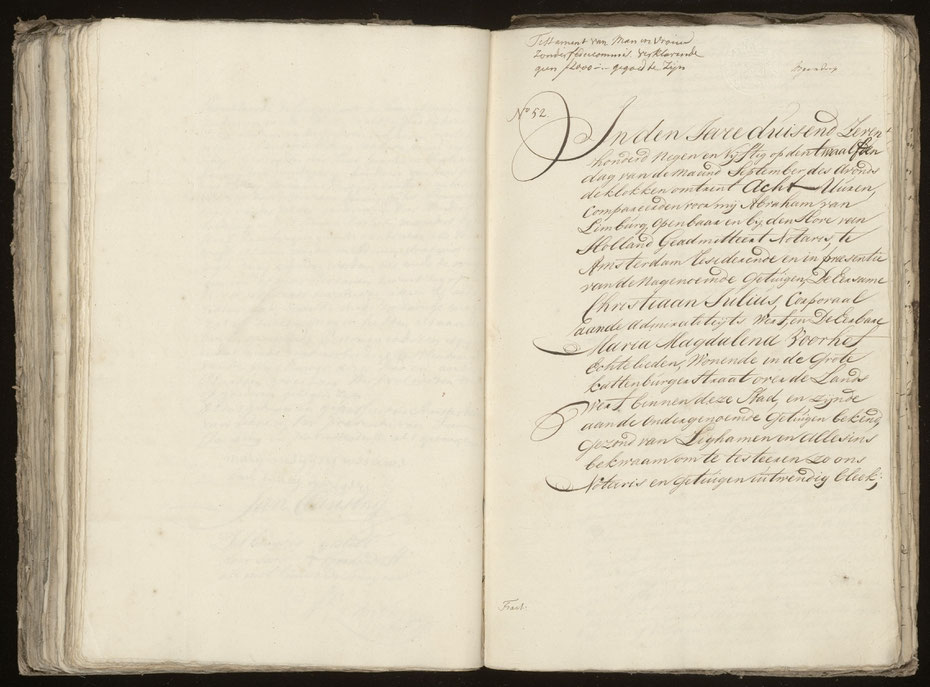 Testament van Man en Vrouw
zonder fidecommis verklarende
geen f 2000 :- gegoed te zijn
No. 52.
In den Jare duisend Zeven
honderd Negen en Vyftig op den twaalfden
dag van de Maand September des Avonds
de klokken omtrent Acht Uuren,
Compareerden voor my Abraham van
Limburg, Openbaar en by den Hove van
Holland Geadmitteert Notaris, te
Amsterdam resideerende en in præsentie
van de Nagenoemde Getuigen, De Eersame
Christiaan Julius, Corporaal
aan de Admiraliteyts Werf, en De Eerbare
Maria Magdalena Voorhes
Echtelieden, Wonende in de Grote
Kattenburgerstraat over de Lands
Werf, binnen deze Stad, en zijnde
aan de Ondergenoemde Getuigen bekend,
Gezond van Lighamen en allesins
bekwaam om te testeeren zo ons
Notaris en Getuigen uitwendig bleek;